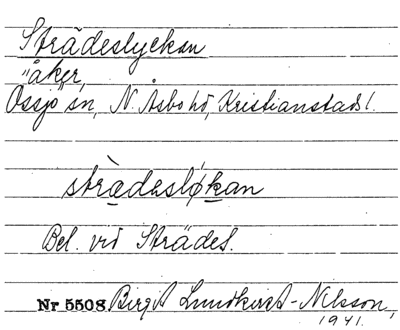 Strädeslyckan
"åker,
Össjö sn, N. Åsbo hd, Kristianstads l.
stràdesløkan
Bel. vid Strädes.
Nr 5508 Birgit Lundkvist-Nilsson,
1941.